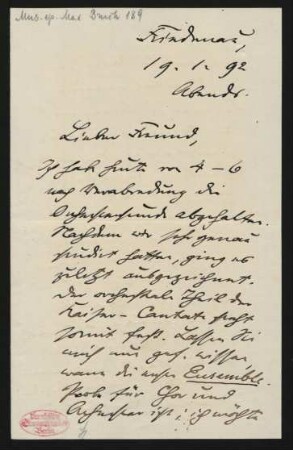 Friedenau,
19. 1. 92
Abends.
Lieber Freund,
Ich habe heute von 4 – 6
nach Verabredung die
Orchesterstunde abgehalten.
Nachdem wir sehr genau
studirt hatten, ging es
zuletzt ausgezeichnet.
Der orchestrale Theil der
Kaiser-Cantate steht
somit fest. Lassen Sie
mich nur gef. wissen
wann die erste Ensemble-
Probe für Chor und
Orchester ist; ich möchte